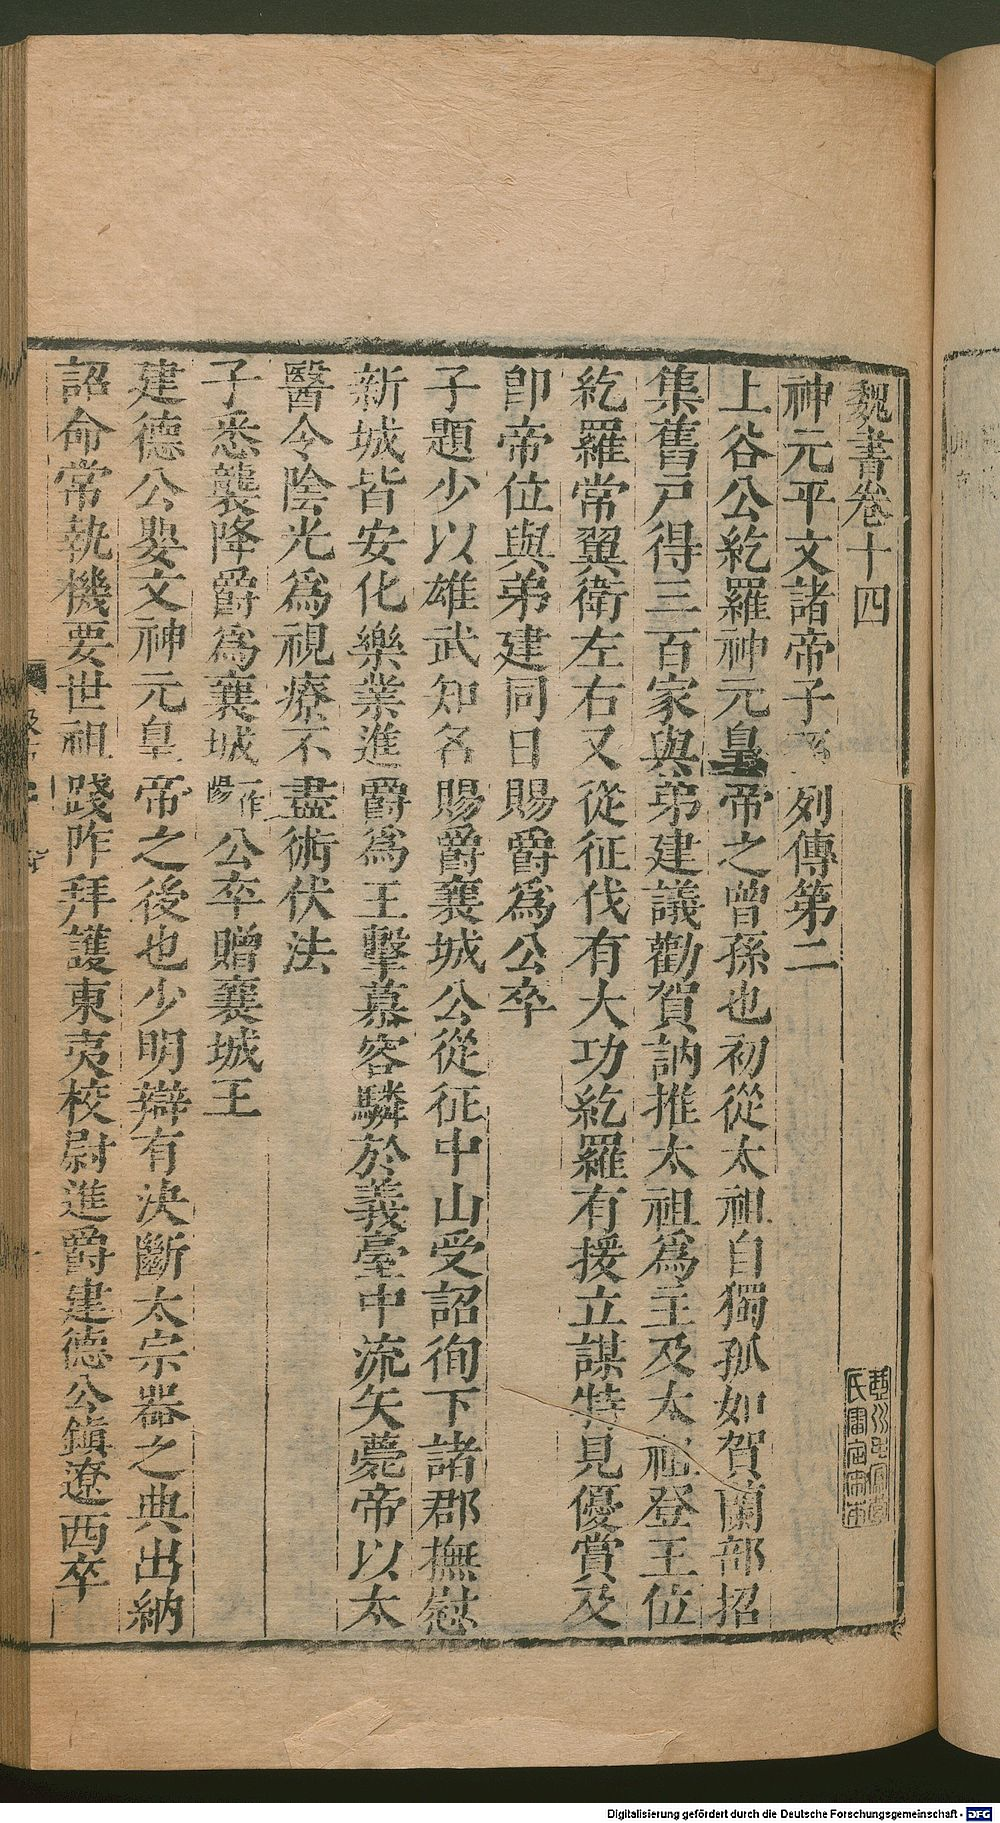 魏書卷十四
神元平文諸帝子孫列傳第二
上谷公紇羅神元皇帝之曾孫也初從太祖自獨孤如賀蘭部招
集舊戶得三百家與弟建議勸賀訥推太祖爲主及太祖登王位
紇羅常翼衛左右又從征伐有大功紇羅有援立謀特見優賞及
卽帝位與弟建同日賜爵爲公卒
子題少以雄武知名賜爵襄城公從征中山受詔徇下諸郡撫慰
新城皆安化樂業進爵爲王擊慕容驎於義臺中流矢薨帝以太
醫令陰光爲視療不盡術伏法
子悉襲降爵爲襄城一作陽公卒贈襄城王
建德公嬰文神元皇帝之後也少明辯有決斷太宗器之典出納
詔命常執機要世祖踐阼拜護東夷校尉進爵建德公鎭遼西卒
Digitalisierung gefördert durch die Deutsche Forschungsgemeinschaft - DFG